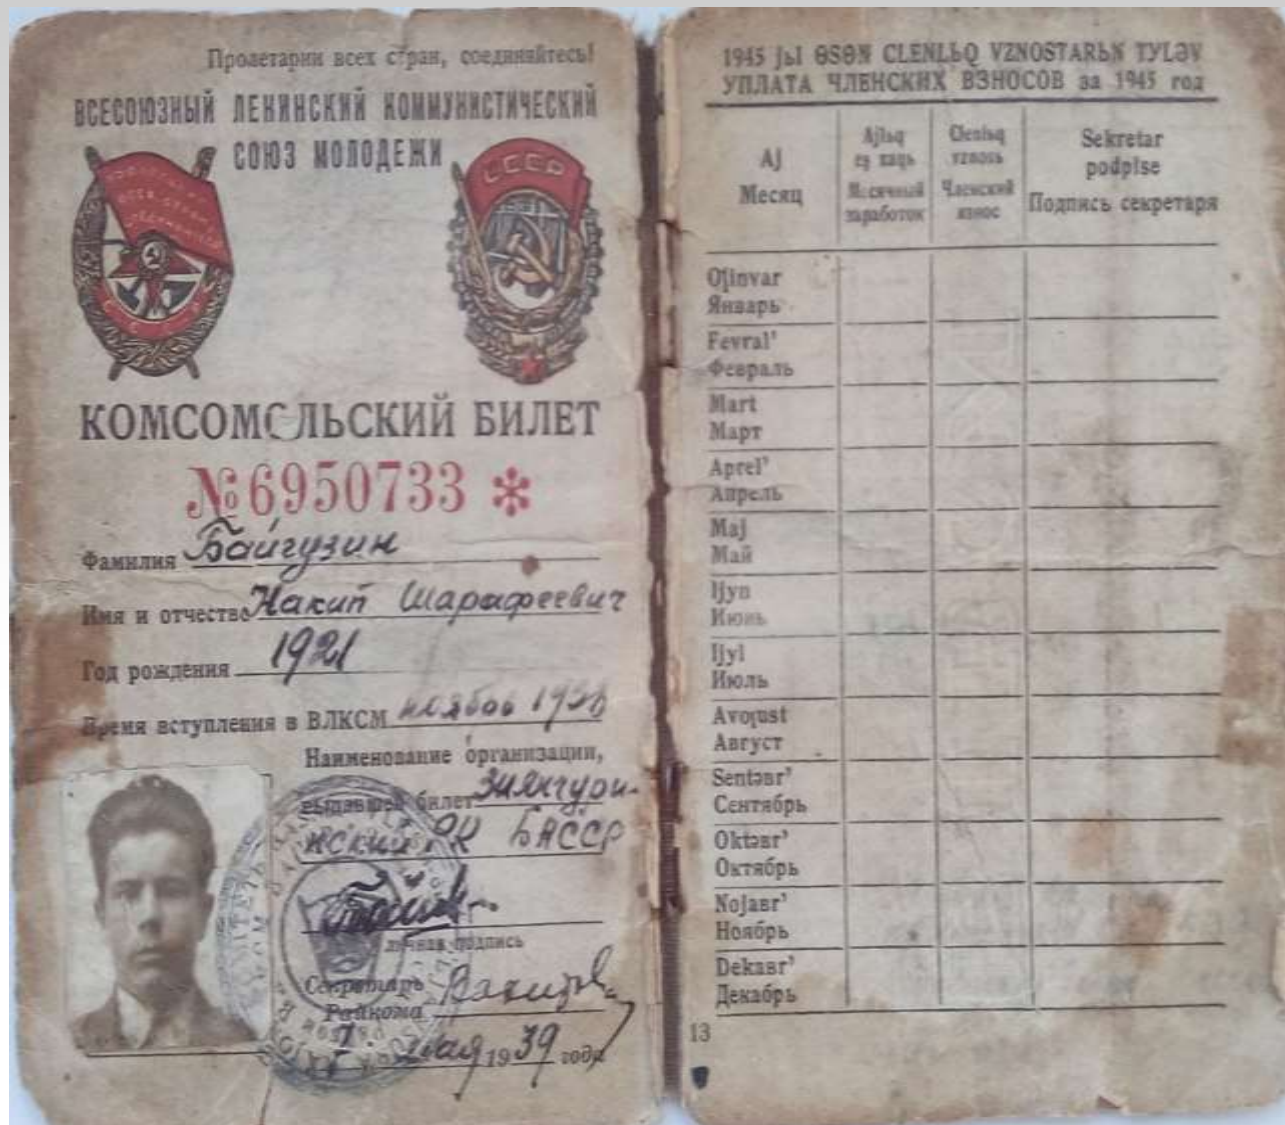 Пролетарии всех стран, соединяйтесь!
ВСЕСОЮЗНЫЙ ЛЕНИНСКИЙ КОММУНИСТИЧЕСКИЙ
СОЮЗ МОЛОДЕЖИ
СССР
КОМСОМОЛЬСКИЙ БИЛЕТ
№6950733 *
Фамилия Байгузин
Имя и отчество Накип Шарафеевич
Год рождения 1921
Время вступления в ВЛКСМ 1938
Наименование организации,
выдавшей билет Зиянчурин-
ский РК БАССР
личная подпись
Секретарь
Райкома
мая 1939 года
1945 jьl ɵsɵn CLENLЬQ VZNOSTARЬN TYLƏV
УПЛАТА ЧЛЕНСКИХ ВЗНОСОВ за 1945 год
Aj
Месяц
Ajlьq
Месячный
заработок
Clenlьq
vznosь
Членский
взнос
Sekretar
podpise
Подпись секретаря
Январь
Fevral'
Февраль
Mart
Март
Aprel'
Апрель
Maj
Май
Ijyn
Июнь
Ijyl
Июль
Август
Sentəbr'
Сентябрь
Oktəbr'
Октябрь
Nojabr'
Ноябрь
Dekabr'
Декабрь
13